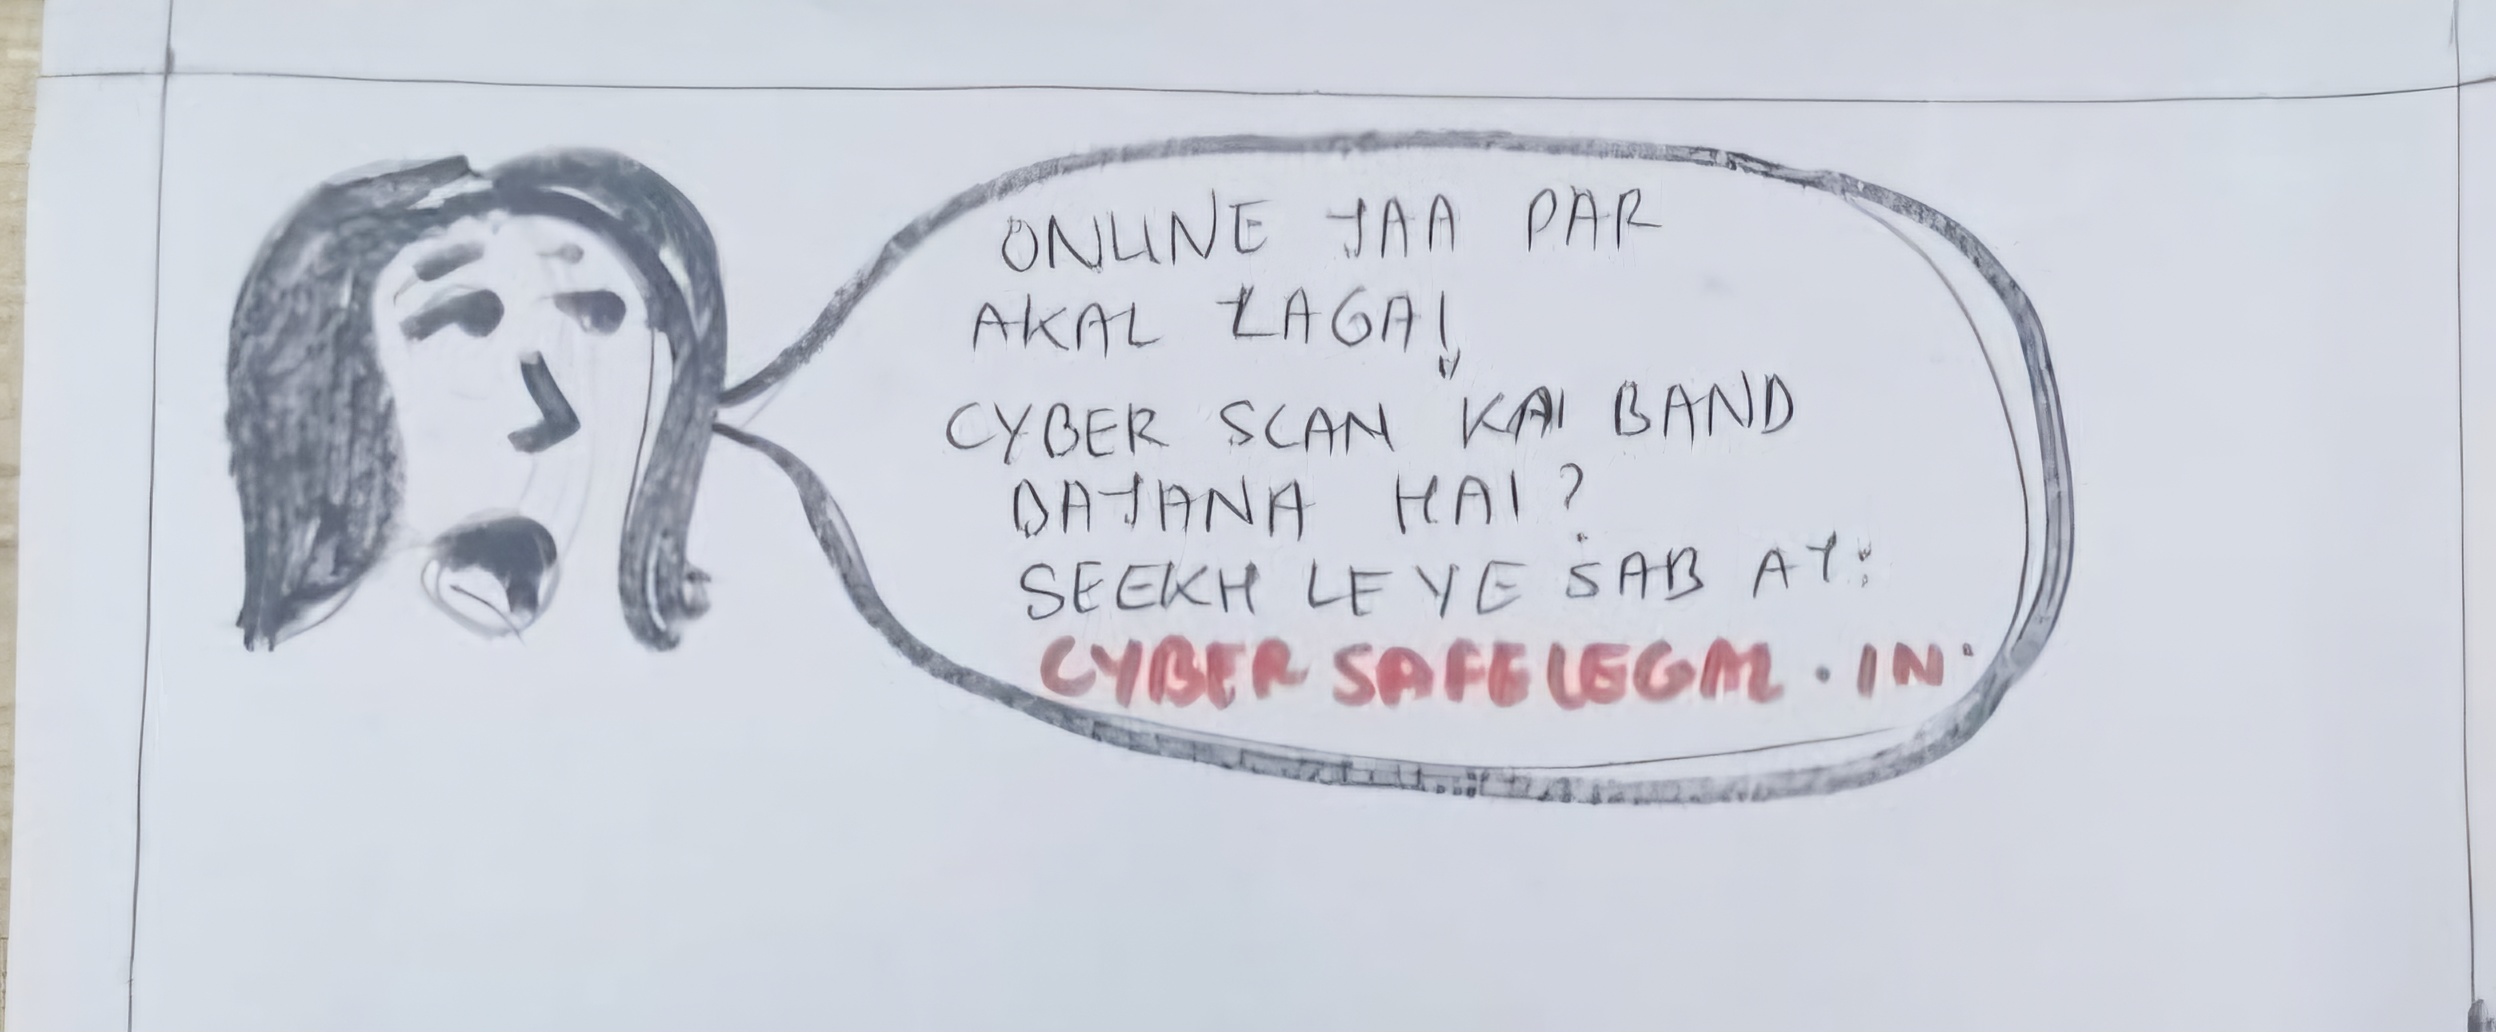 ONLINE JAA PAR
AKAL LAGA!
CYBER SCAN KAI BAND
BAJANA HAI?
SEEKH LE YE SAB AT:
CYBER SAFE LEGAL . IN